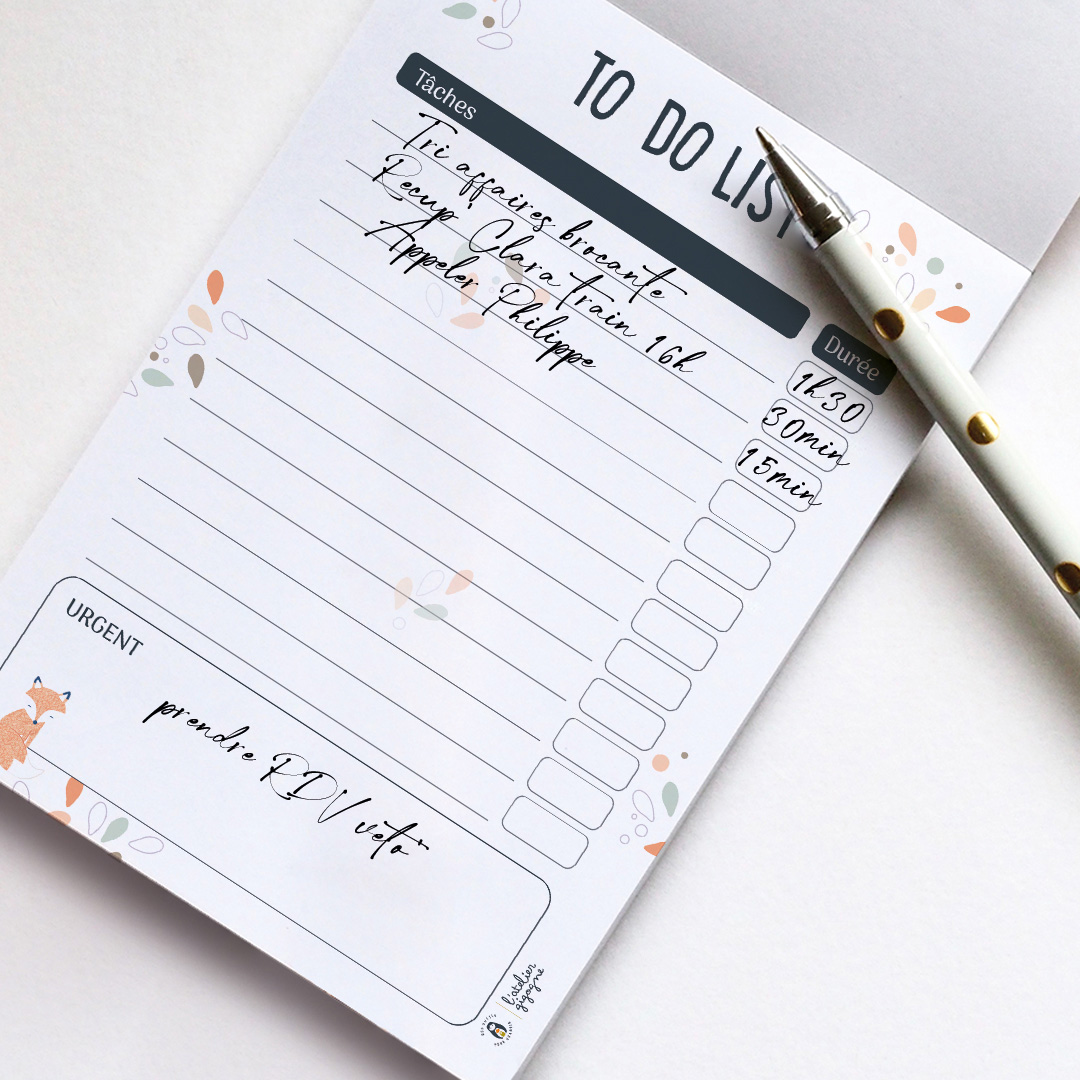 TO DO LIST
Tâches
Durée
Tri affaires brocante
1h30
Recup' Clara train 16h
30min
Appeler Philippe
15min
URGENT
prendre RDV véto
l'atelier
gigogne